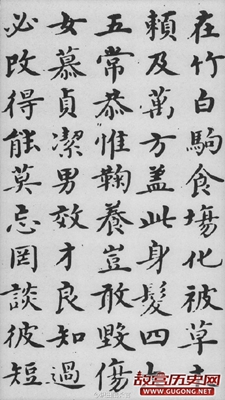 在竹白駒食塲化被草木
賴及萬方盖此身髮四大
五常恭惟鞠養豈敢毀傷
女慕貞潔男效才良知過
必改得能莫忘罔談彼短
故宫历史网
WWW.GUGONG.NET